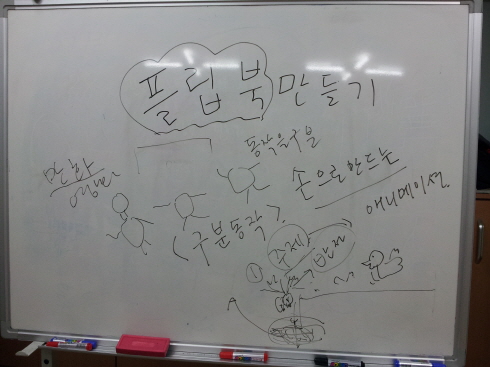 플립북 만들기
동작을 구분
만화
손으로 만드는
애니메이션
(구분동작)
주제
반전
①